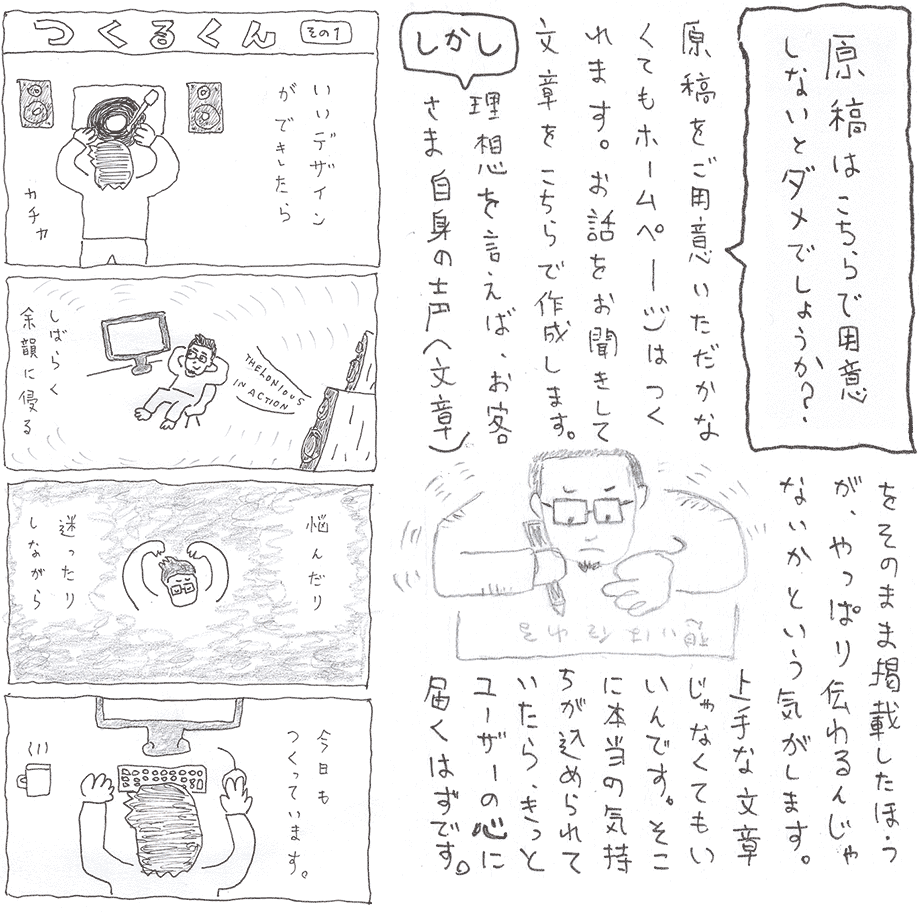 原稿はこちらで用意
しないとダメでしょうか?
原稿をご用意いただかな
くてもホームページはつく
れます。お話をお聞きして
文章をこちらで作成します。
しかし
理想を言えば、お客
さま自身の声(文章)
をそのまま掲載したほう
が、やっぱり伝わるんじゃ
ないかという気がします。
上手な文章
じゃなくてもい
いんです。そこ
に本当の気持
ちが込められて
いたら、きっと
ユーザーの心に
届くはずです。
想いは伝わる
つくるくん
その1
いいデザイン
ができたら
カチャ
THELONIOUS
IN ACTION
しばらく
余韻に侵る
悩んだり
迷ったり
しながら
今日も
つくっています。